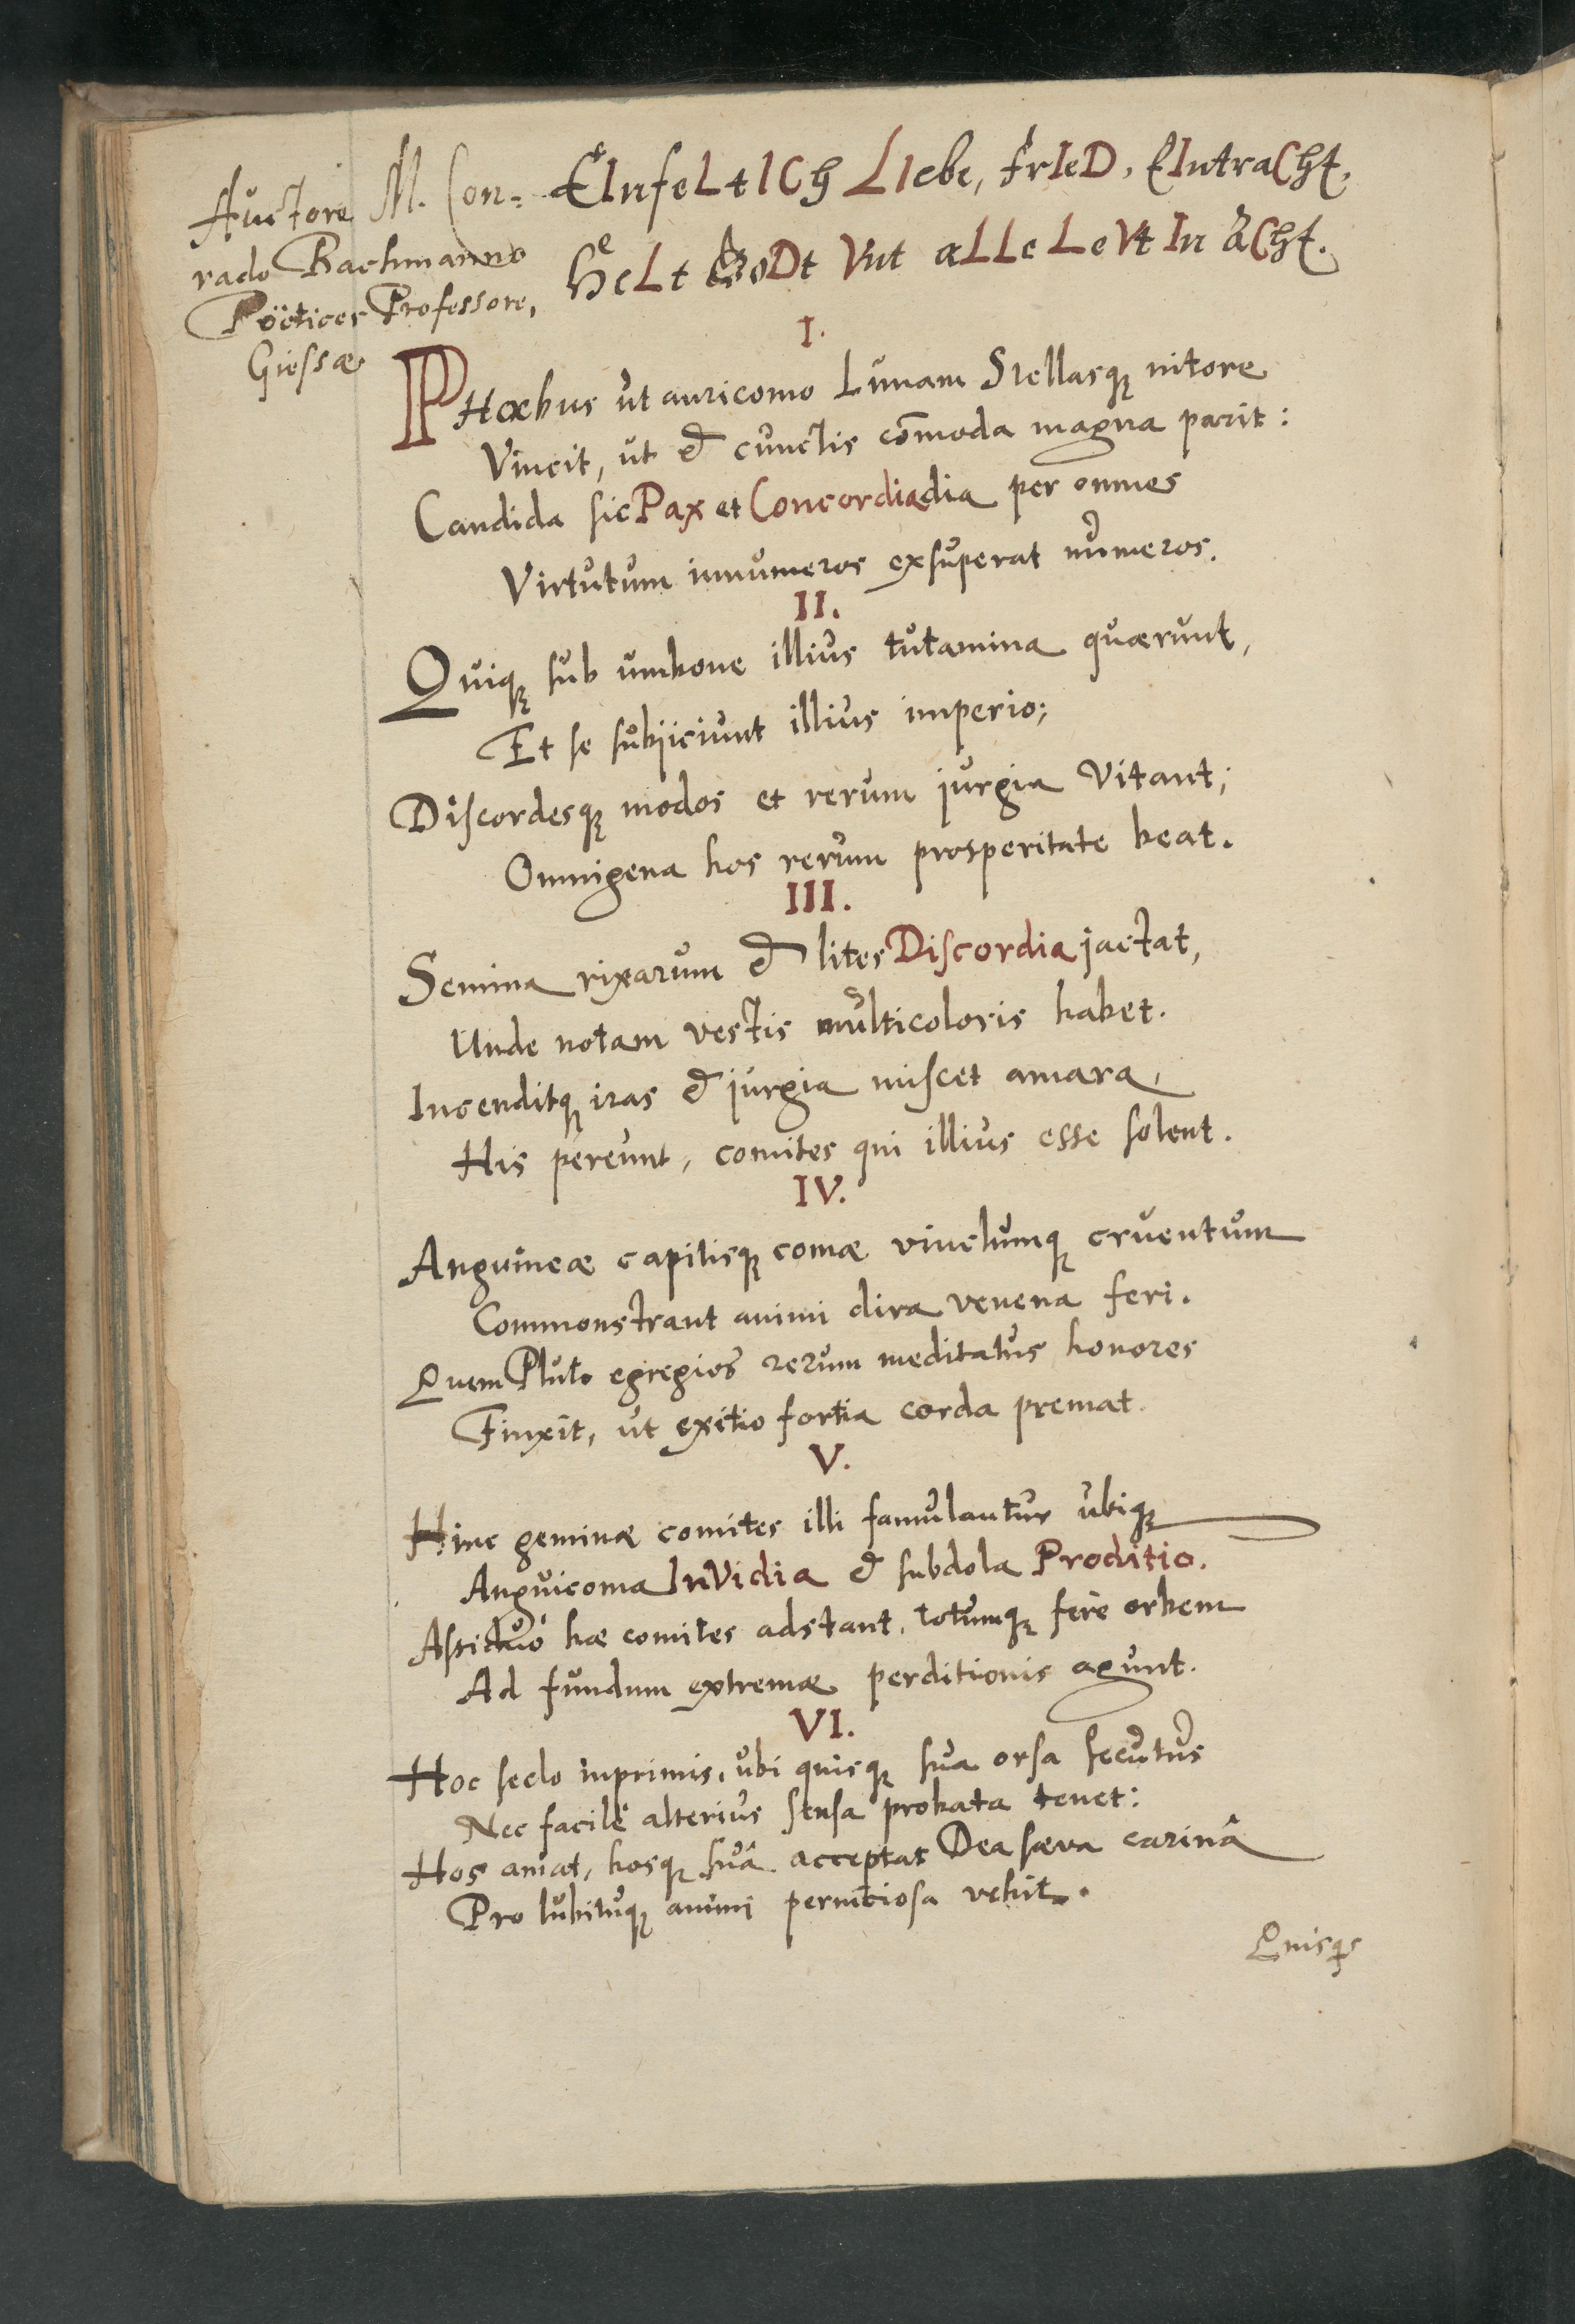 Auctore M. Con-
rado Bachmanno
Poëtices Professore,
Giessæ
EInfeLtICh LIebe, frIeD, EIntraCht,
HeLt GoDt Vnt aLLe LeVt In aCht.
I.
PHœbus ut auricomo Lunam Stellasq; nitore
Vincit, ut & cunctis com̄oda magna parit:
Candida sic Pax et Concordia dia per omnes
Virtutum innumeros exsuperat numeros.
II.
Quiq; sub umbone illius tutamina quærunt,
Et se subijciunt illius imperio;
Discordesq; modos et rerum jurgia Vitant;
Omnigena hos rerum prosperitate beat.
III.
Semina rixarum & lites Discordia jactat,
Unde notam vestis multicoloris habet.
Incenditq; iras & jurgia miscet amara,
His pereunt, comites qui illius esse solent.
IV.
Anguineæ capitisq; comæ vinclumq; cruentum
Commonstrant animi dira venena feri.
Quem Pluto egregios rerum meditatus honores
Finxit, ut exitio fortia corda premat.
V.
Hinc geminæ comites illi famulantur ubiq;
Anguicoma InVidia & subdola Proditio.
Assiduò hæ comites adstant, totumq; ferè orbem
Ad fundum extremæ perditionis agunt.
VI.
Hoc seclo inprimis, ubi quisq; sua orsa secutus
Nec facilè alterius sensa probata tenet:
Hos amat, hosq; suâ acceptat Dea sæva carinâ
Pro lubituq; animi perniciosa vehit.
Quisq;s